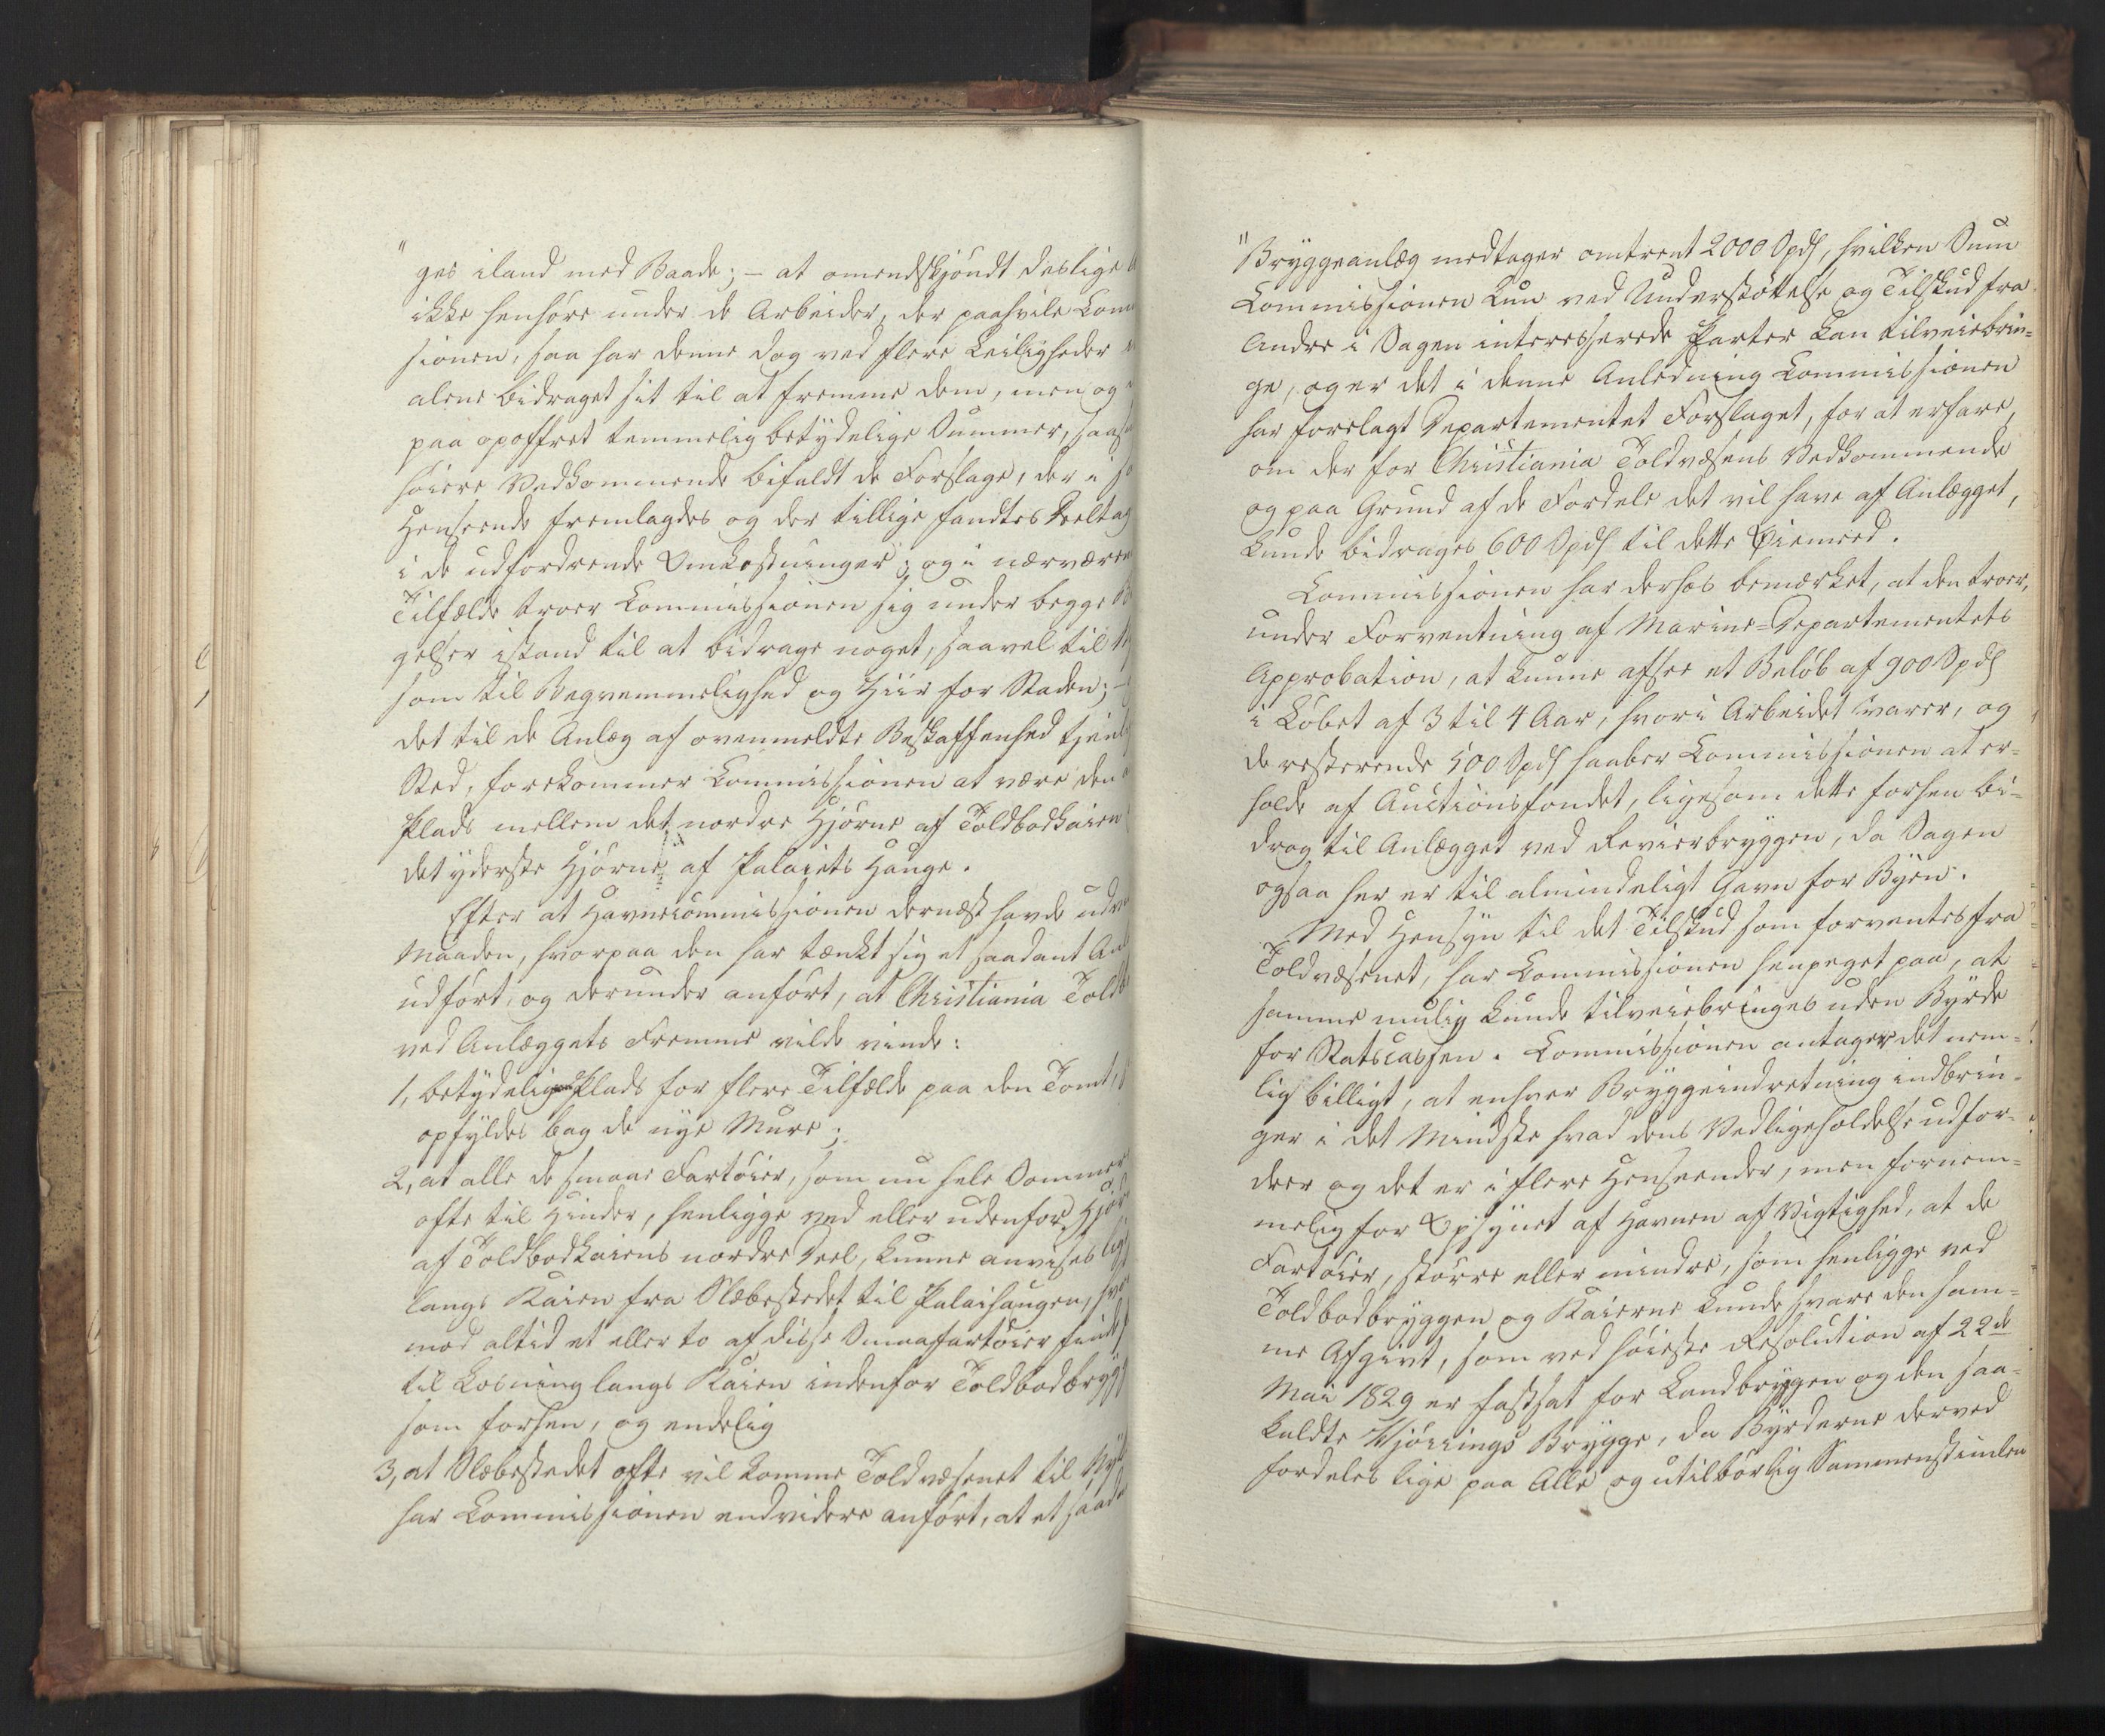 "
ges iland med Baade; – at omendskjøndt deslige
ikke henhøre under de Arbeider, der paahvile Com
sionen, saa har denne dog ved flere Leiligheder
alene bidraget sit til at fremme dem, men og
paa opoffret temmelig betydelige Summer, saa
høiere Vedkommende bifaldt de Forslage, der i
Henseende fremlagdes og der tillige fandtes Deeltag
i de udfordrende Omkostninger; og i nærværen
Tilfælde troer Commissionen sig under begge
gelser istand til at bidrage noget, saavel til
som til Beqvemmelighed og Ziir for Staden; –
det til de Anlæg af ovenmeldte Beskaffenhed tjenl
Sted, forekommer Commissionen at være den
Plads mellem det nordre Hjørne af Toldbodkaien
det yderste Hjørne af Palaiets Hauge.
Efter at Havnecommissionen dernæst havde udv
Maaden, hvorpaa den har tænkt sig et saadant An
udført, og derunder anført, at Christiania Told
ved Anlæggets Fremme vilde vinde:
1, betydelig Plads for flere Tilfælde paa den Tomt,
opfyldes bag de nye Mure;
2, at alle de smaae Fartøier, som nu hele Sommer
ofte til Hinder, henligge ved eller udenfor Hjør
af Toldbodkaiens nordre Deel, kunne anvises
langs Kaien fra Slæbestedet til Palaihaugen,
mod altid et eller to af disse Smaafartøier
til Losning langs Kaien indenfor Toldbodbrygg
som forhen, og endelig
3, at Slæbestedet ofte vil komme Toldvæsenet til
har Commissionen endvidere anført, at et saad
"Bryggeanlæg medtager omtrent 2000 Spd, hvilken Sum
Commissionen kun ved Understøttelse og Tilskud fra
Andre i Sagen interesserede Parter kan tilveiebrin-
ge, og er det i denne Anledning Commissionen
har forelagt Departementet Forslaget, for at erfare,
om der for Christiania Toldvæsens Vedkommende
og paa Grund af de Fordele det vil have af Anlægget,
kunde bidrages 600 Spd til dette Øiemeed.
Commissionen har derhos bemærket, at den troer,
under Forventning af Marine-Departementets
Approbation, at kunne afsee et Beløb af 900 Spd
i Løbet af 3 til 4 Aar, hvori Arbeidet varer, og
de resterende 500 Spd haaber Commissionen at er-
holde af Auctionsfondet, ligesom dette forhen bi-
drog til Anlægget ved Revierbryggen, da Sagen
ogsaa her er til almindeligt Gavn for Byen.
Med Hensyn til det Tilskud som forventes fra
Toldvæsenet, har Commissionen henpeget paa, at
samme mulig kunde tilveiebringes uden Byrde
for Statscassen. Commissionen antager det nem-
lig billigt, at enhver Bryggeindretning indbrin-
ger i det Mindste hvad dens Vedligeholdelse udfor-
drer og det er i flere Henseender, men fornem-
melig for Opsynet af Havnen af Vigtighed, at de
Fartøier, større eller mindre, som henligge ved
Toldbodbryggen og Kaierne kunde svare den sam-
me Afgivt, som ved høieste Resolution af 22de
Mai 1829 er fastsat for Landbryggen og den saa-
kaldte Kjøllings Brygge, da Byrderne derved
fordeles lige paa Alle og utilbørlig Sammenstimlen